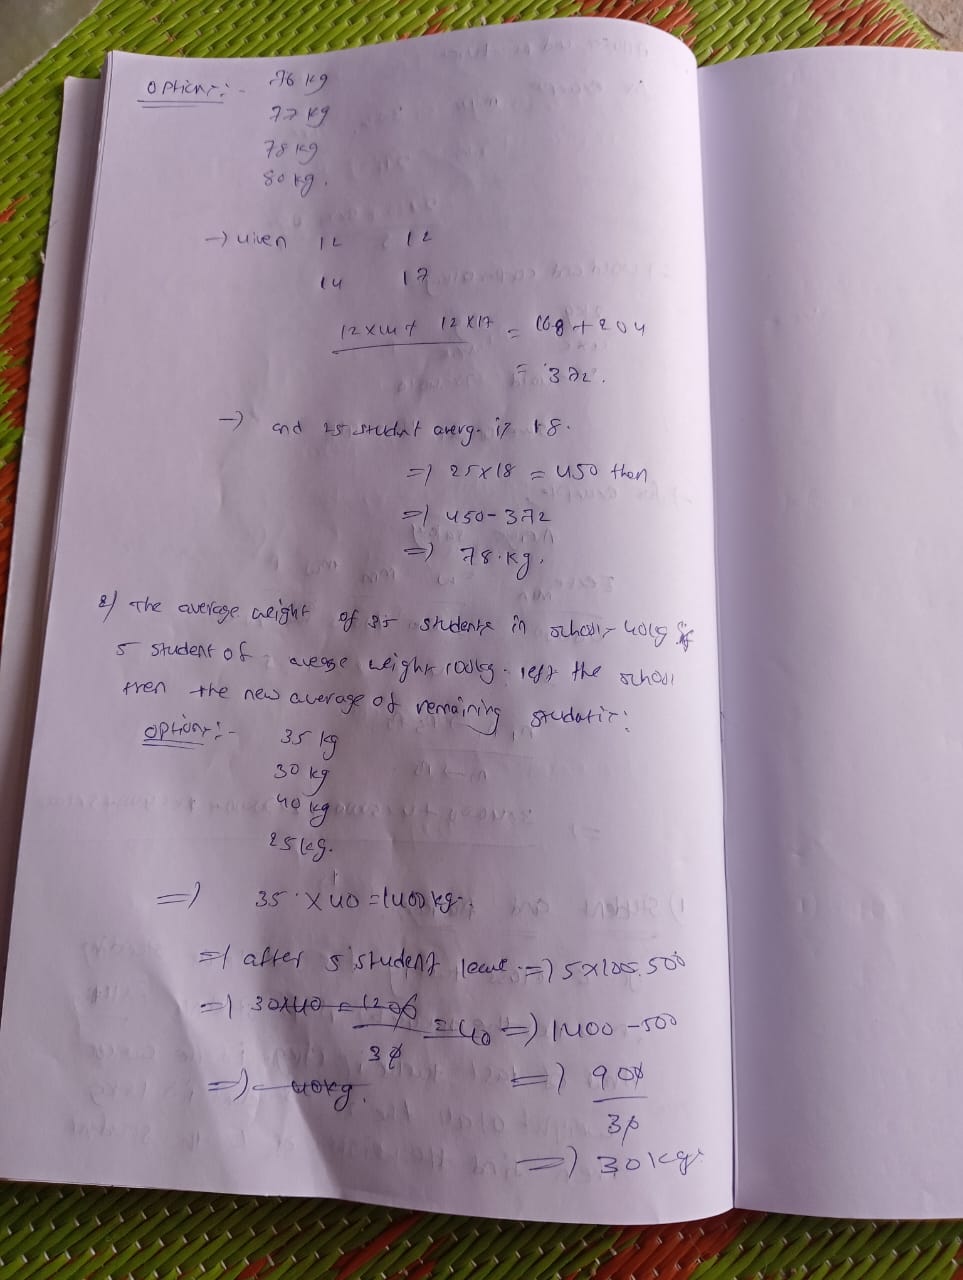 Options:- 76 kg
77 kg
78 kg
80 kg.
→ Given 12 12
14 17
12x14+ 12x17 = 168+204
= 372.
→ and 25 student averg. is 18.
=) 25x18 = 450 then
=) 450-372
=) 78.kg.
2) The average weight of 35 students in school - 40kg if
5 student of avease weight 100kg. left the school
then the new average of remaining
Options:- 35 kg
30 kg
40 kg
25 kg.
=) 35 x 40 = 1400 kg.
=) after 5 student leave =) 5x100. 500
=) 30x40 = 1200/30 = 40 =) 1400 -500
=) 40kg. =) 900
30
=) 30 kg.